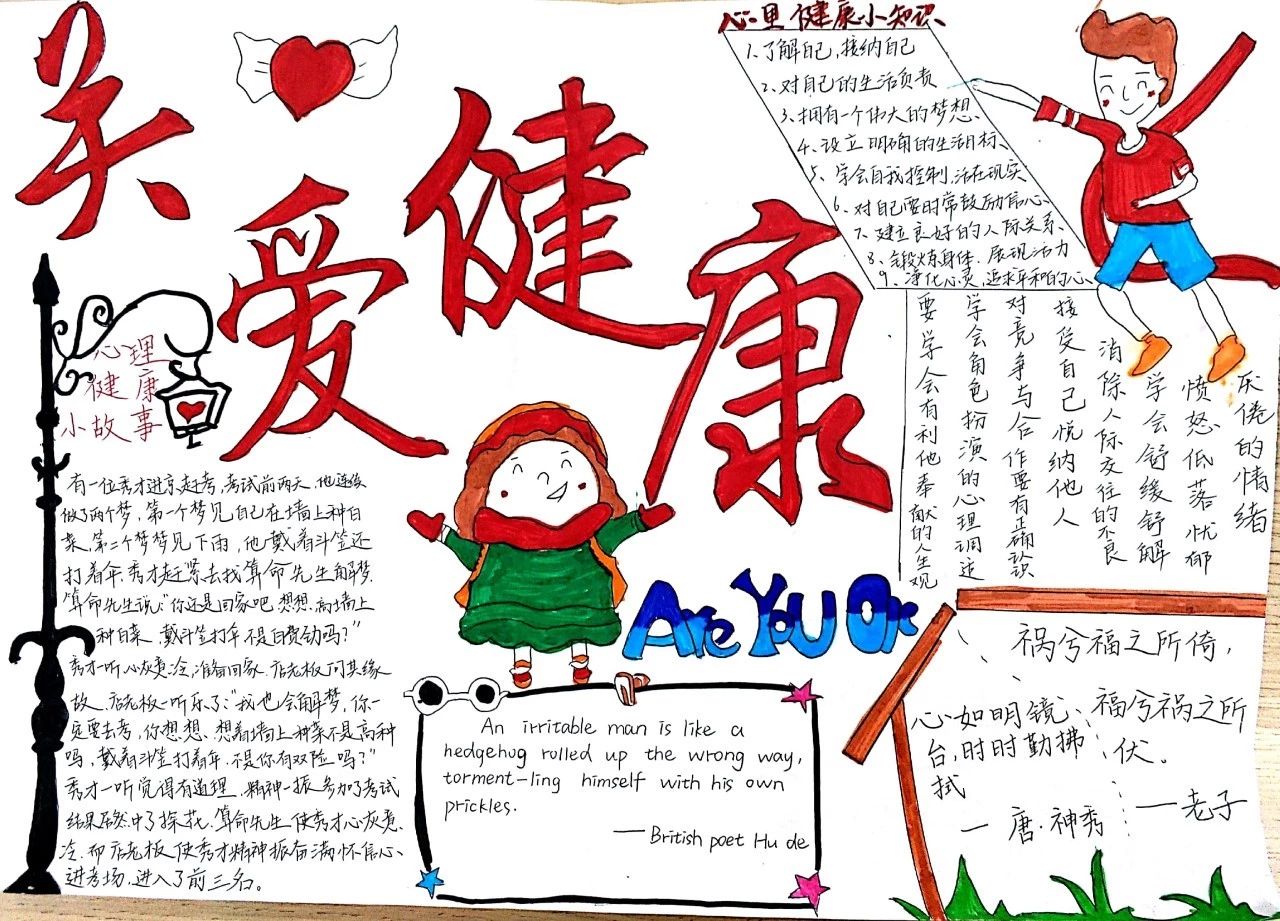 关爱健康
心里健康小知识
1、了解自己,接纳自己
2、对自己的生活负责
3、拥有一个伟大的梦想、
4、设立明确的生活目标、
5、学会自我控制,活在现实
6、对自己要时常鼓励信心、
7、建立良好的人际关系、
8、锻炼身体、展现活力
9、净化心灵,追求平和的心、
厌倦的情绪
愤怒低落忧郁
学会舒缓舒解
消除人际交往的不良
接受自己悦纳他人
对竞争与合作要有正确认识
学会角色扮演的心理调适
要学会有利他奉献的人生观
心理
健康
小故事
有一位秀才进京赶考,考试前两天,他连续
做了两个梦,第一个梦见自己在墙上种白
菜、第二个梦梦见下雨,他戴着斗笠还
打着伞,秀才赶紧去找算命先生解梦.
算命先生说:“你还是回家吧.想想,高墙上
种白菜 戴斗笠打伞不是白费劲吗?”
秀才一听,心灰意冷,准备回家.店老板问其缘
故.店老板一听乐了:“我也会解梦,你一
定要去考,你想想、想着墙上种菜不是高种
吗,戴着斗笠打着伞,不是你有双险吗?”
秀才一听觉得有道理.精神一振参加了考试
结果居然中了探花.算命先生使秀才心灰意
冷.而店老板使秀才精神振奋满怀信心、
进考场,进入了前三名。
Are You Ok
An irritable man is like a
hedgehug rolled up the wrong way,
torment-ling himself with his own
prickles.
—British poet Hu de
祸兮福之所倚,
福兮祸之所
伏。
—老子
心如明镜
台,时时勤拂
拭
— 唐·神秀